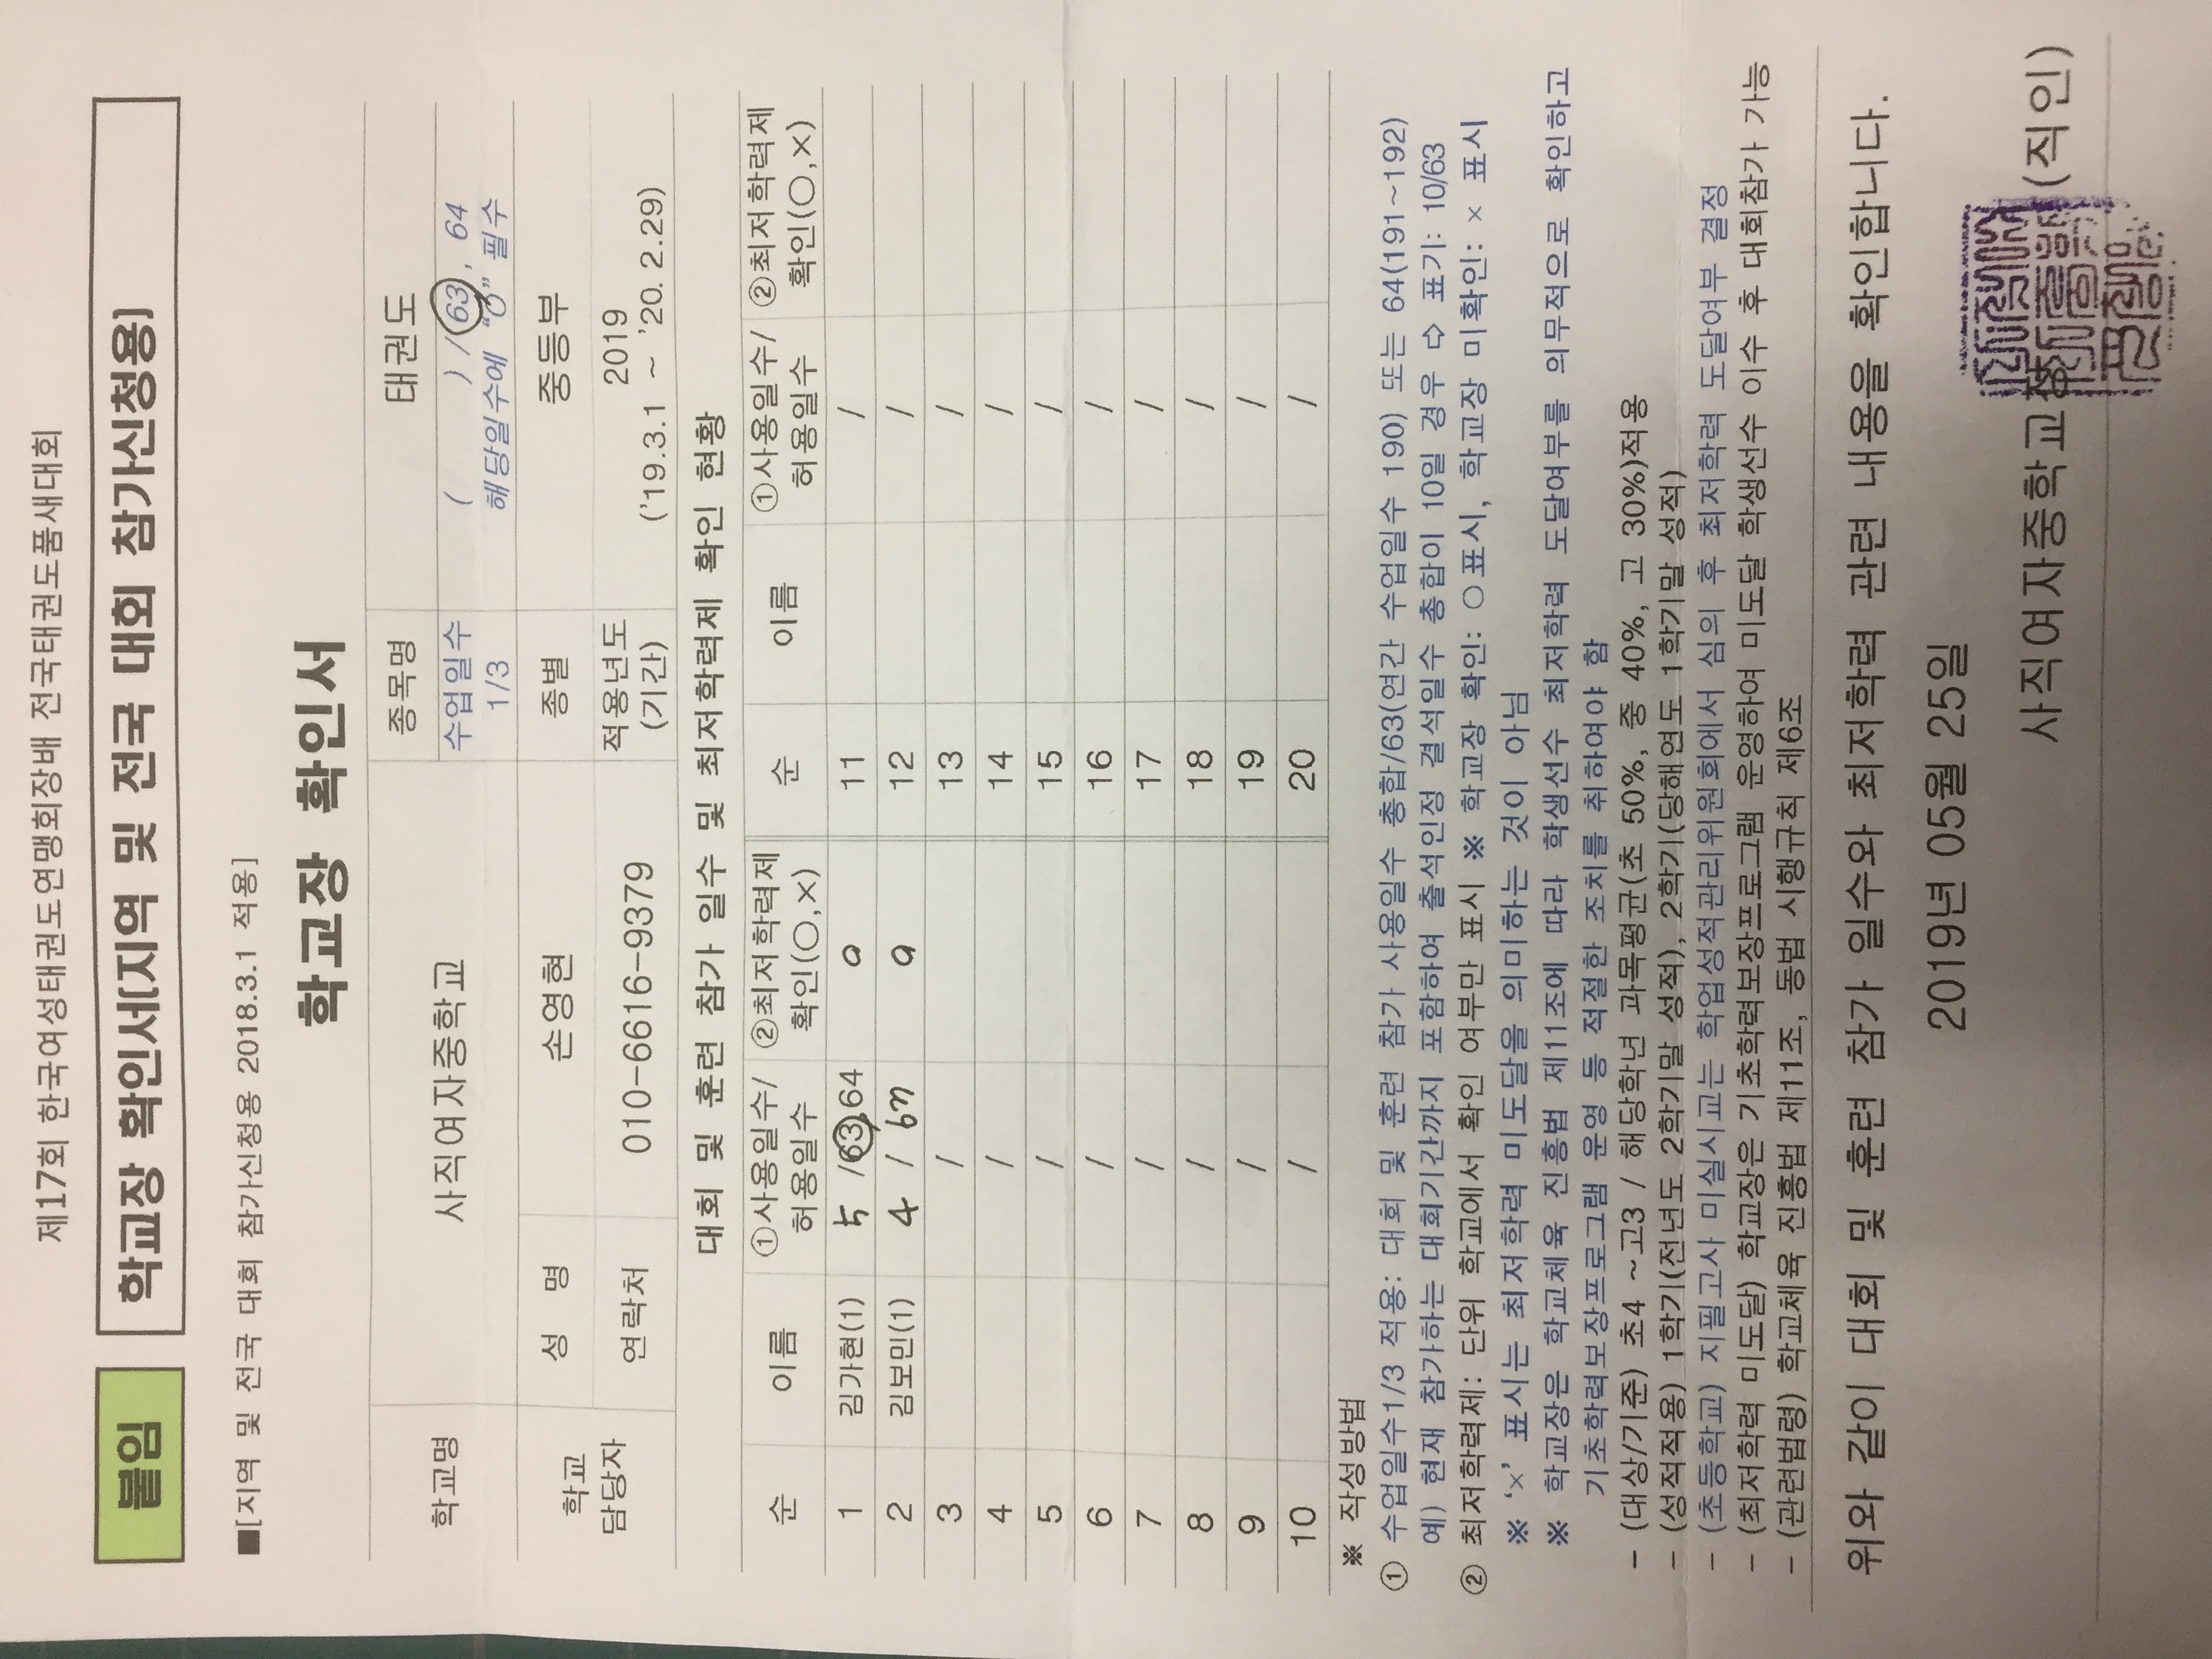 제17회 한국여성태권도연맹회장배 전국태권도품새대회
붙임 학교장 확인서(지역 및 전국 대회 참가신청용)
■[지역 및 전국 대회 참가신청용 2018.3.1 적용]
학교장 확인서
학교명 사직여자중학교 종목명 태권도
수업일수 1/3 ( ) / 63, 64
해당일수에 "O" 필수
학교 담당자 성 명 손영현 종별 중등부
연락처 010-6616-9379 적용년도 (기간) 2019
('19.3.1 ~ '20. 2.29)
대회 및 훈련 참가 일수 및 최저학력제 확인 현황
순 이름 ①사용일수/허용일수 ②최저학력제 확인(○,×) 순 이름 ①사용일수/허용일수 ②최저학력제 확인(○,×)
1 김가현(1) 5 /63,64 o 11 /
2 김보민(1) 4 / 63 o 12 /
3 / 13 /
4 / 14 /
5 / 15 /
6 / 16 /
7 / 17 /
8 / 18 /
9 / 19 /
10 / 20 /
※ 작성방법
① 수업일수1/3 적용: 대회 및 훈련 참가 사용일수 총합/63(연간 수업일수 190) 또는 64(191~192)
예) 현재 참가하는 대회기간까지 포함하여 출석인정 결석일수 총합이 10일 경우 ⇨ 표기: 10/63
② 최저학력제: 단위 학교에서 확인 여부만 표시 ※ 학교장 확인: ○표시, 학교장 미확인: × 표시
※ '×' 표시는 최저학력 미도달을 의미하는 것이 아님
※ 학교장은 학교체육 진흥법 제11조에 따라 학생선수 최저학력 도달여부를 의무적으로 확인하고
기초학력보장프로그램 운영 등 적절한 조치를 취하여야 함
- (대상/기준) 초4 ~고3 / 해당학년 과목평균(초 50%, 중 40%, 고 30%)적용
- (성적적용) 1학기(전년도 2학기말 성적), 2학기(당해연도 1학기말 성적)
- (초등학교) 지필고사 미실시교는 학업성적관리위원회에서 심의 후 최저학력 도달여부 결정
- (최저학력 미도달) 학교장은 기초학력보장프로그램 운영하여 미도달 학생선수 이수 후 대회참가 가능
- (관련법령) 학교체육 진흥법 제11조, 동법 시행규칙 제6조
위와 같이 대회 및 훈련 참가 일수와 최저학력 관련 내용을 확인합니다.
2019년 05월 25일
사직여자중학교장 (직인)